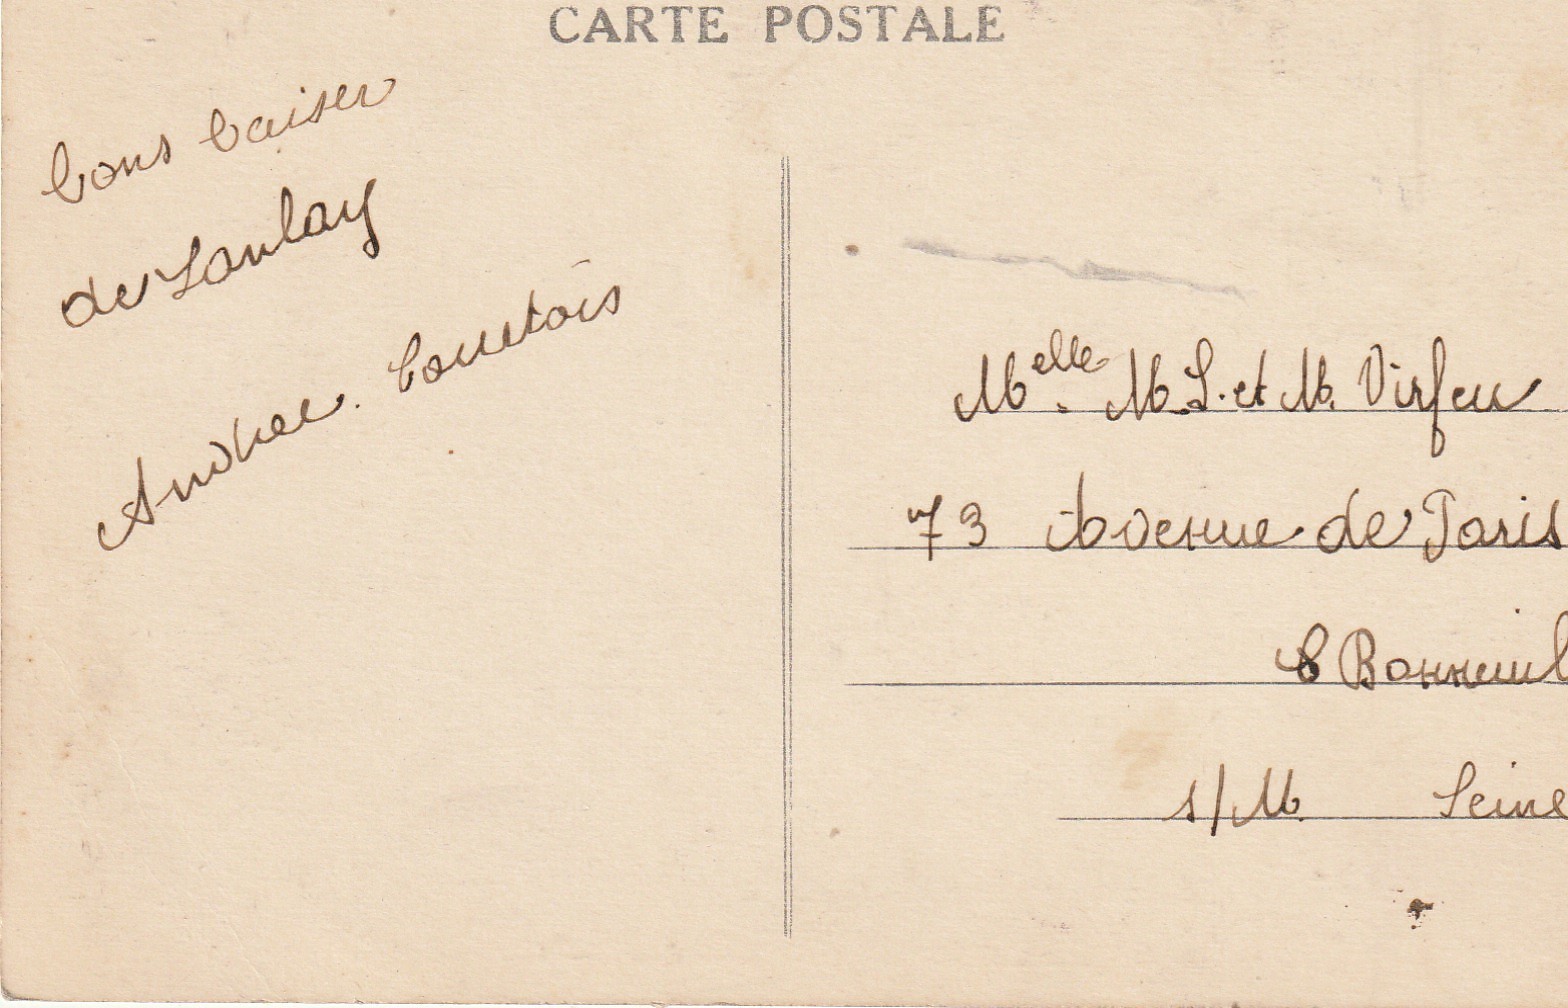 CARTE POSTALE
bons baiser
de Lanlay
Andree. Courtois
Melle. M. L. et M. Virfeu
73 Avenue de Paris
Bonneuil
s/M. Seine